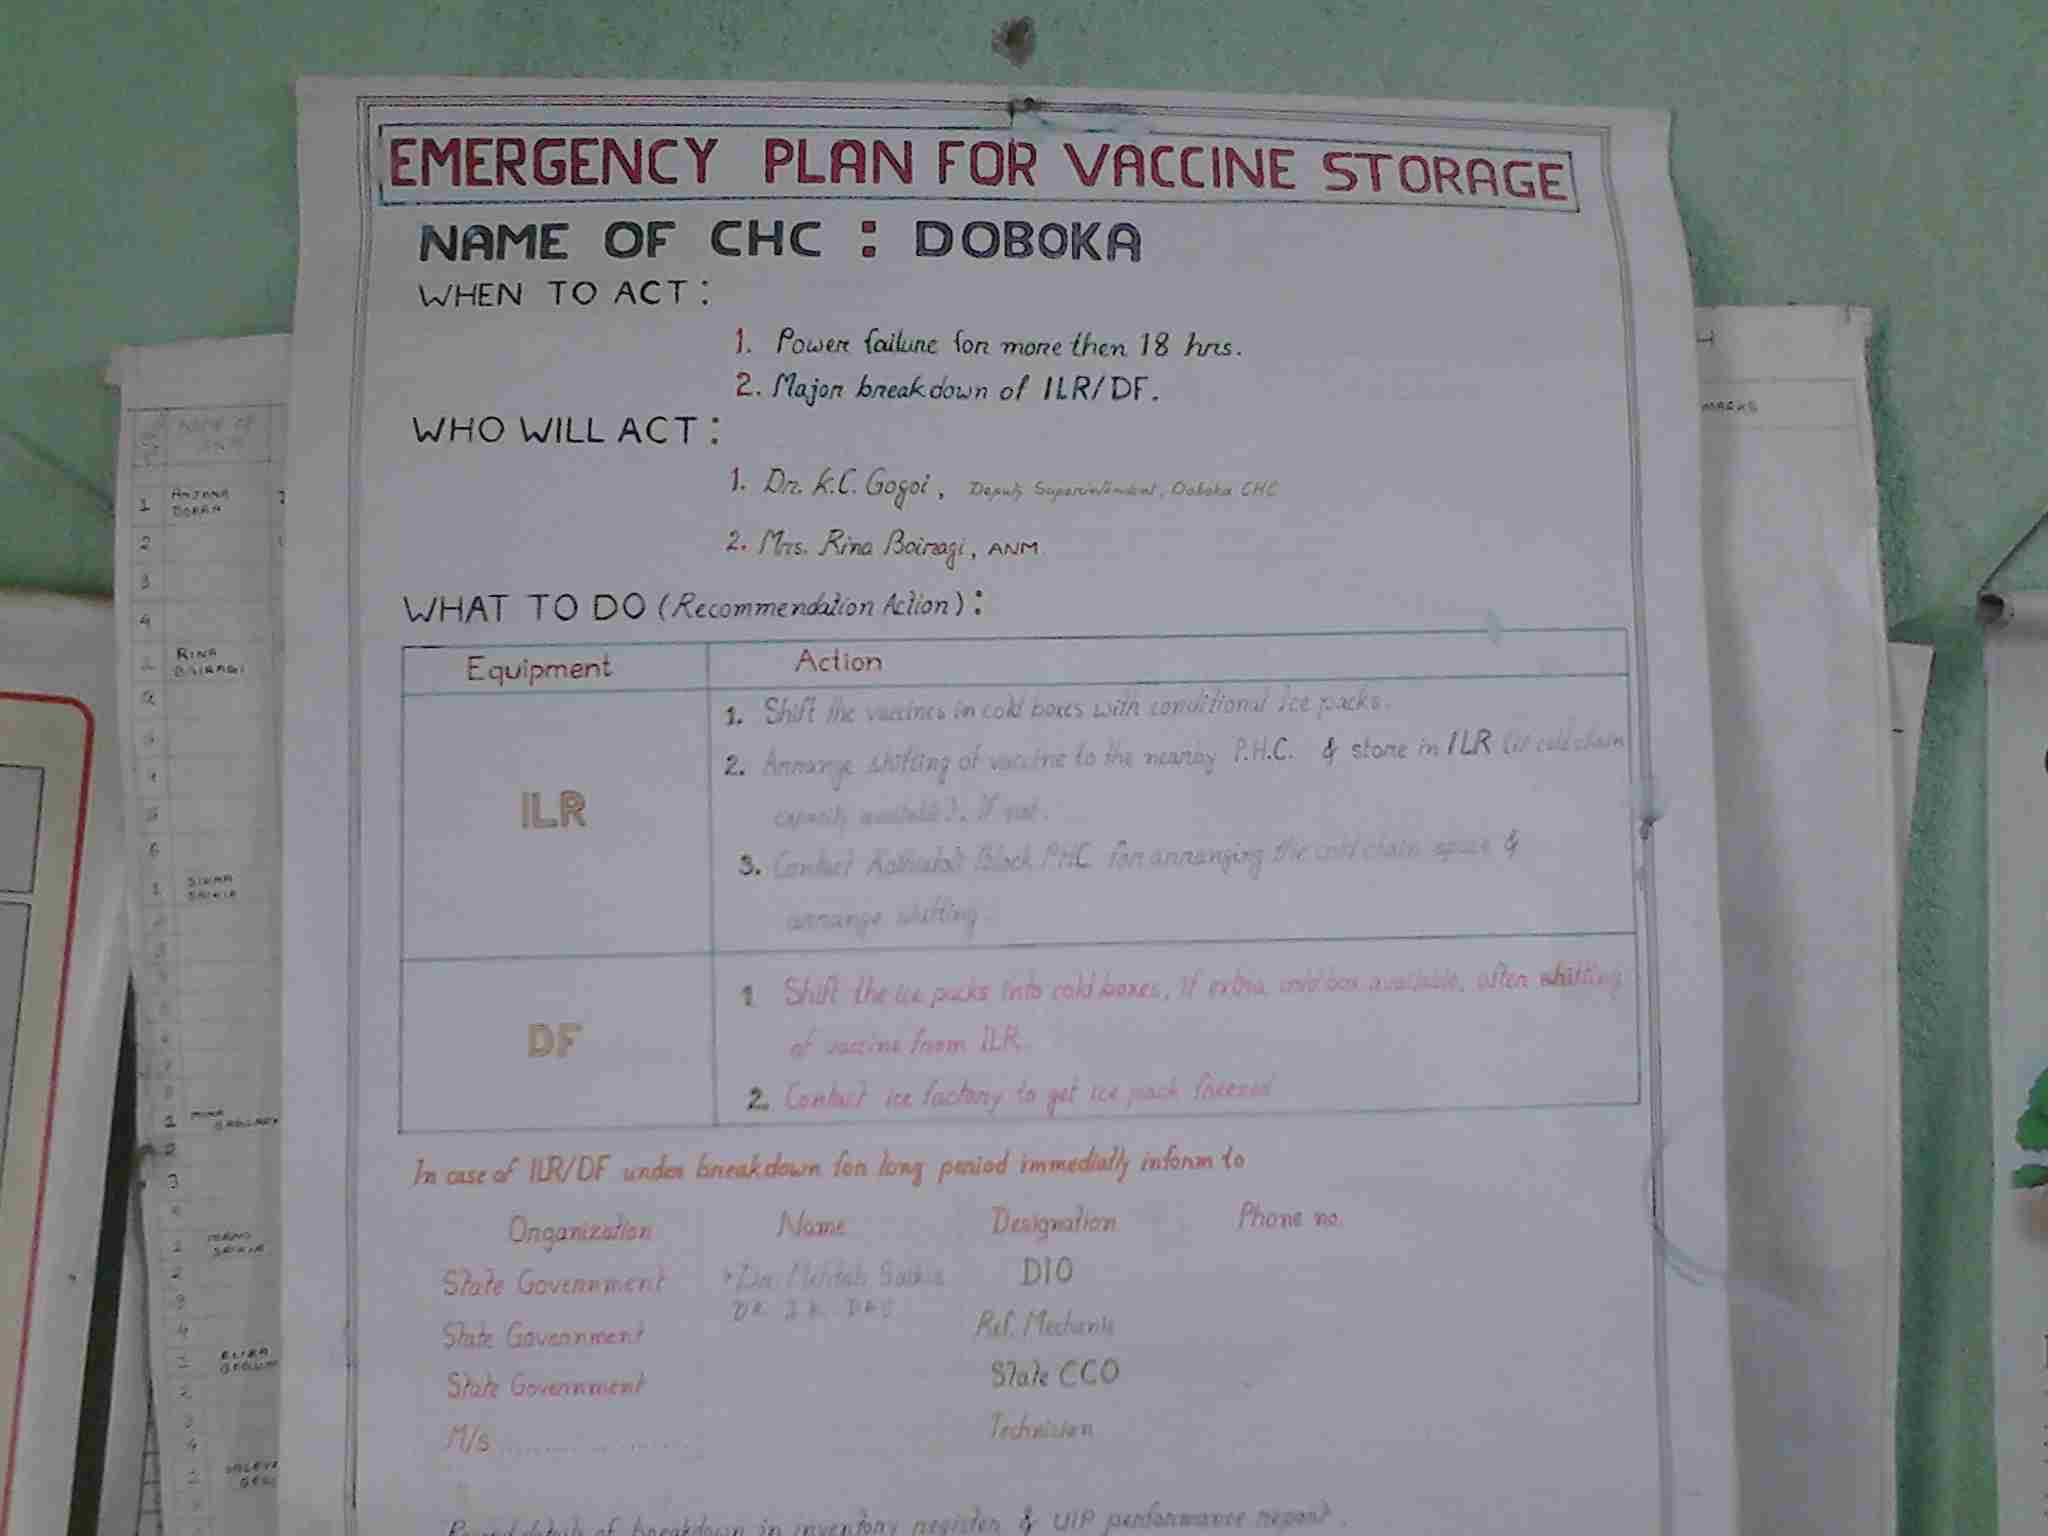 EMERGENCY PLAN FOR VACCINE STORAGE
NAME OF CHC : DOBOKA
WHEN TO ACT :
1. Power failure for more then 18 hrs.
2. Major breakdown of ILR/DF.
WHO WILL ACT :
1. Dr. K.C. Gogoi, Deputy Superintendent, Doboka CHC
2. Mrs. Rina Boiragi, ANM
WHAT TO DO (Recommendation Action) :
Equipment Action
ILR
1. Shift the vaccines in cold boxes with conditional Ice packs.
2. Arrange shifting of vaccine to the nearby P.H.C. & store in ILR (if cold chain
capacity available). If not.
3. Contact Block PHC for arranging the cold chain space &
arrange shifting.
DF
1 Shift the ice packs into cold boxes, if extra cold box available, after shifting
of vaccine from ILR.
2. Contact ice factory to get ice pack freezed
In case of ILR/DF under breakdown for long period immediatly inform to
Organization Name Designation Phone no.
State Government Dr. DIO
DR
State Government Ref. Mechanic
State Government State CCO
M/s .................... Technician
Record details of breakdown in inventory register & UIP performance report.
MARKS
NAME OF
ANM
1 ANJANA
2
3
4
RINA
BAIRAGI
6
1
SAIKIA
1
2
3
SAIKIA
2
3
4
ELIZA
2
3
4